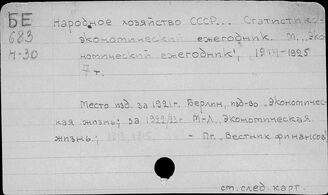 БЕ
683
Н-30
Народное хозяйство СССР... Статистико-
экономический ежегодник. М., "Эко
номический ежегодник", 1914-1925
7 т.
Место изд. за 1921г. Берлин, изд-во "Экономичес-
кая жизнь; за 1922/23г. М-Л., "Экономическая
жизнь; - Пг. "Вестник финансов"
см. след. карт.